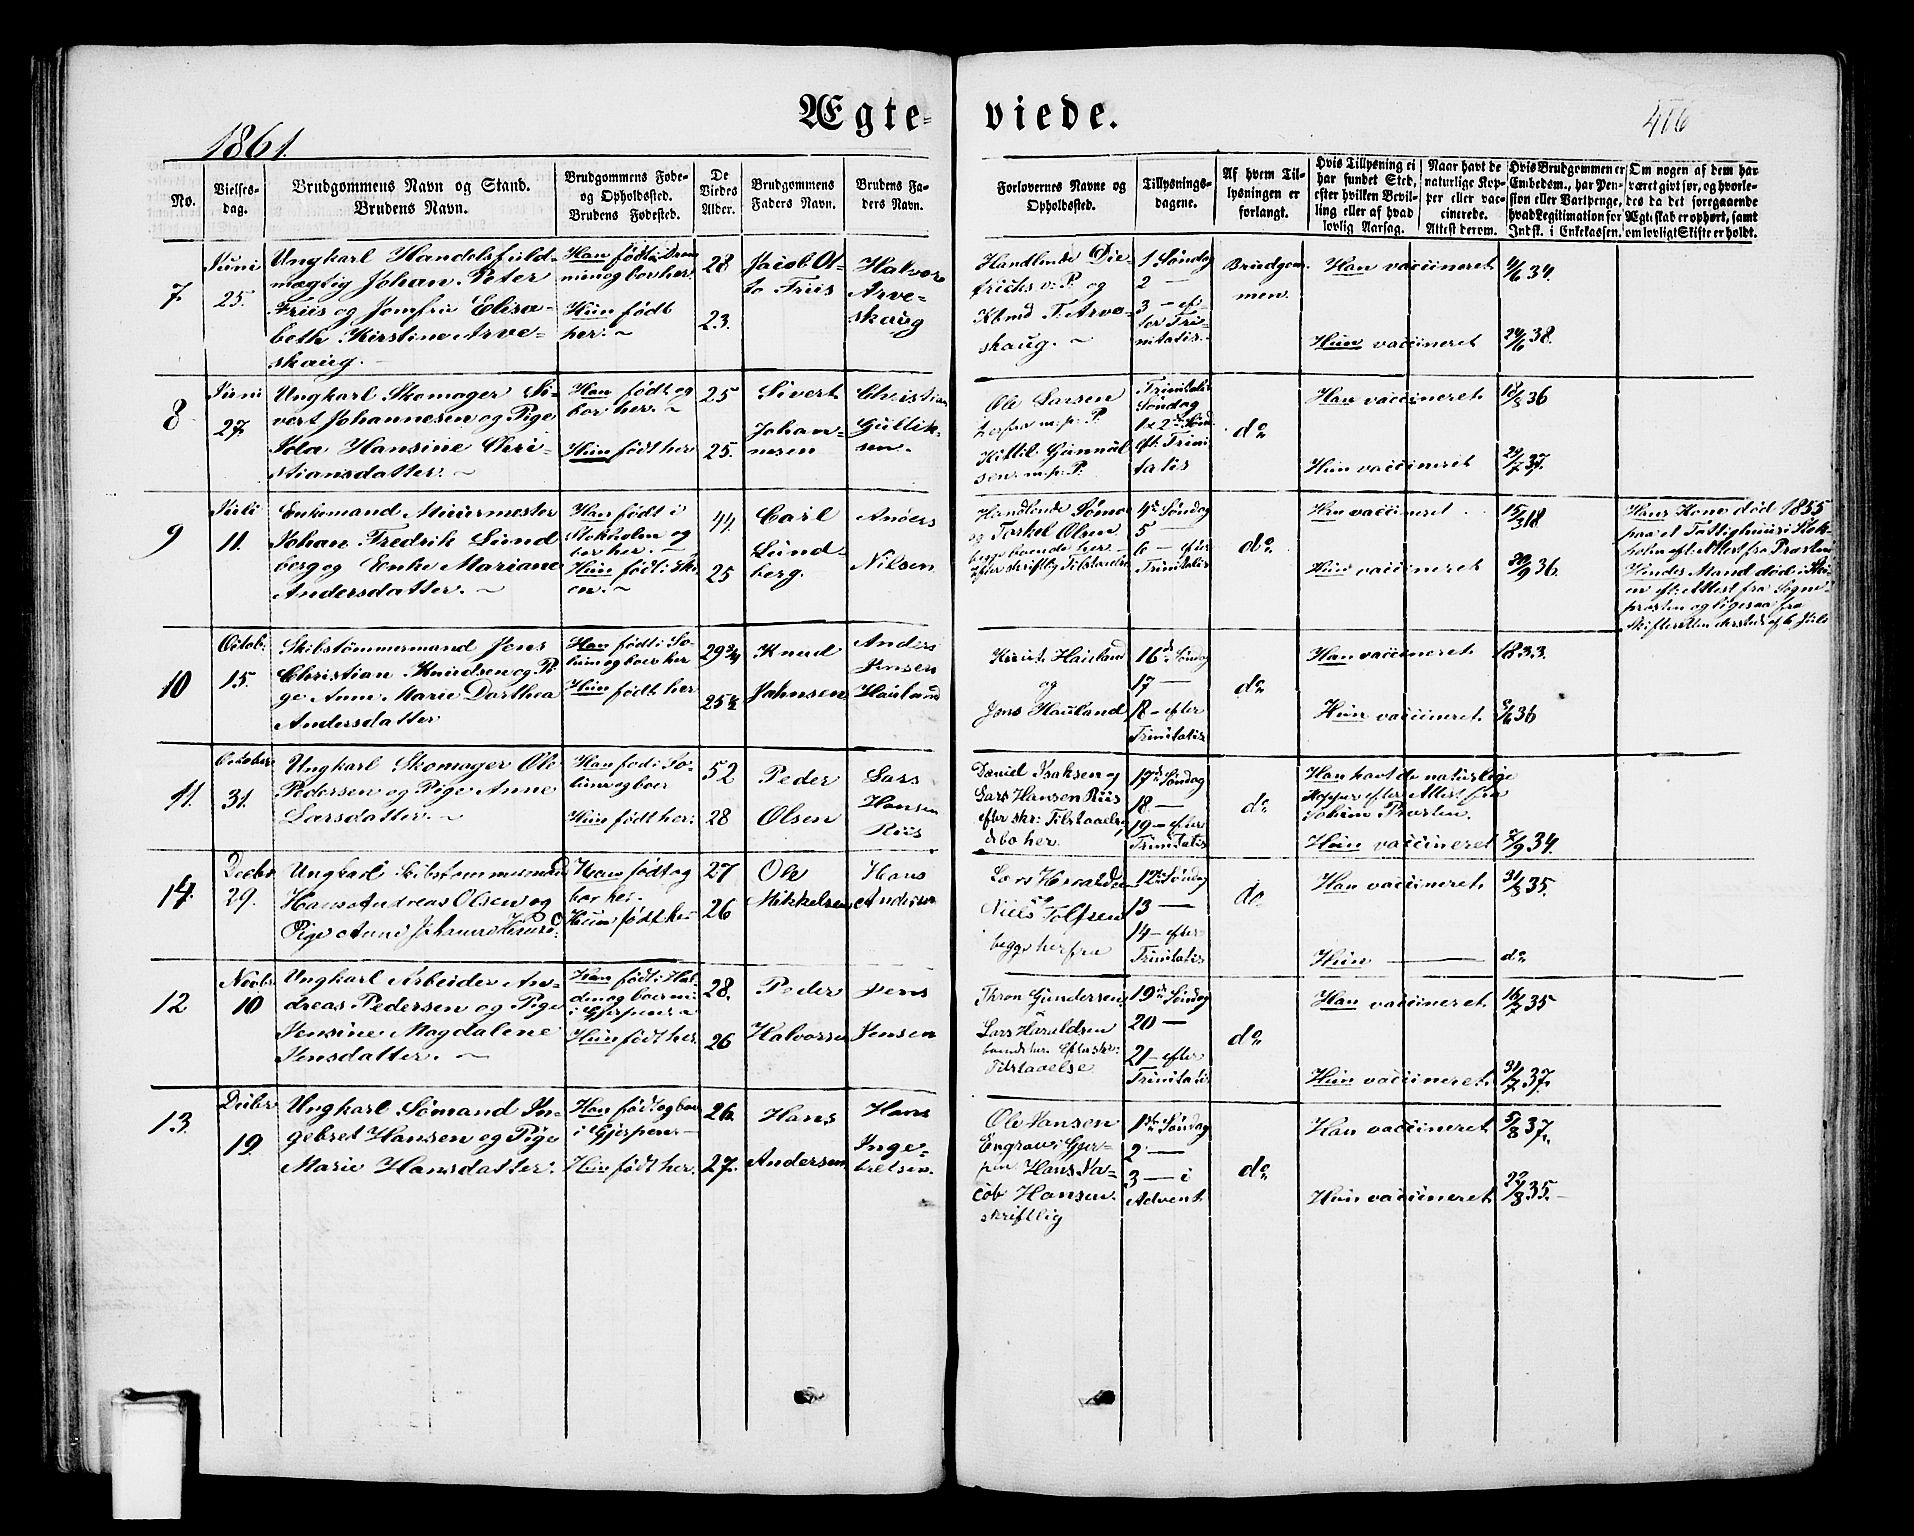 Ægte-
viede.
1861.
416
No.
Vielses-
dag.
Brudgommens Navn og Stand.
Brudens Navn.
Brudgommens Føde-
og Opholdssted.
Brudens Fødested.
De
Viedes
Alder.
Brudgommens
Faders Navn.
Brudens Fa-
ders Navn.
Forlovernes Navne og
Opholdssted.
Tillysnings-
dagene.
Af hvem Til-
lysningen er
forlangt.
Hvis Tillysning ei
har fundet Sted,
efter hvilken Bevil-
ling eller af hvad
lovlig Aarsag.
Naar havt de
naturlige Kop-
per eller vac-
cinerede.
Attest derom.
Hvis Brudgommen er
Embedsm., har Pen-
sion eller Vartpenge,
hvad Legitimation for
Indsk. i Enkekassen.
Om nogen af dem har
været gift før, og hvorle-
des da det foregaaende
Ægteskab er ophørt, samt
om lovligt Skifte er holdt.
7
Juni
25.
Ungkarl Handelsfuld-
mægtig Johan Peter
Friis og Jomfru Elisa-
beth Kirstine Arve-
skaug.
Han født i Dram
men og bor her.
Hun født
her.
28
23.
Jacob Ot-
to Friis
Halvor
Arve-
skaug
Handlende Die-
trichs og
T. Arve-
skaug.
1 Søndag
2 —
3 — ef-
ter Tri-
nitatis.
Brudgom-
men.
Han vaccineret
Hun vaccineret
4/6 34.
24/6 38.
8
Juni
27.
Ungkarl Skomager Si-
vert Johannesen og Pige
Hansine Chri-
stiansdatter.
Han født og
bor her.
Hun født her
25
25.
Sivert
Johan-
nesen
Christian
Gullik-
sen.
Ole Larsen
herfra m. p. P.
Kittil Gunnul-
sen m. p. P.
Trinitatis
Søndag
1 & 2den Sønd
eft. Trini
tatis
do
Han vaccineret
Hun vaccineret
18/8 36
24/7 37.
9
Juli
11.
Enkemand Muurmester
Johan Fredrik Lund
berg og Enke Mariane
Andersdatter.
Han født i
Stokholm og
bor her.
Hun født i Ski
en.
44
25
Carl
Lund-
berg.
Anders
Nilsen
Handlende
og Terkel Olsen
begge boende her
efter skriftlig Tilstaaelse
4de Søndag
5
6 — efter
Trinitatis
do
Han vaccineret
Hun vaccineret
15/3 18
20/9 36.
Hans Kone død 1855
paa et Fattighuus i Stok-
holm eft. Attest fra Prosten
Hendes Mand død i Ski
en eft. Attest fra Sogne-
prosten og ligesaa fra
Skifteretten dersteds af 6 Juli
10
Octob.
15.
Skibstømmermand Jens
Christian Knudsen og Pi
ge Anne Marie Dorthea
Andersdatter
Han født i So-
lum og boer her
Hun født her
29 3/4
25 1/2
Knud
Jahnsen
Anders
Jensen
Hauland
Knut Hauland
og
Jens Hauland
16de Søndag
17 —
18 — efter
Trinitatis
do
Han vaccineret
Hun vaccineret
1833.
36
11.
October
31.
Ungkarl Skomager Ole
Pedersen og Pige Anne
Larsdatter.
Han fød i So-
lum og boer
Hun født her.
52
28
Peder
Olsen
Lars
Hansen
Riis
Daniel Isaksen og
Lars Hansen Riis
efter skr: Tilstaaelse
bo her.
17de Søndag
18 —
19 — efter
Trinitatis
do
Han havt de naturlige
Kopper efter Attest fra
Solum Præsten.
Hun vaccineret
7/9 34.
14.
Decbr
29.
Ungkarl Skibstømmermand
Hans Andreas Olsen og
Pige Anne Johanne
Han født og
bor her.
Hun født her
27
26
Ole
Mikkelsen
Hans
Andersen
Lars
og
Niels Tolfsen
begge herfra
12te Søndag
13 —
14 — efter
Trinitatis
do
Han vaccineret
Hun — do
31/8 35.
12
Novbr
10
Ungkarl Arbeider An-
dreas Pedersen og Pige
Jensine Magdalene
Jensdatter.
Han født i Hal
den og boer nu
i Gjerpen
Hun født her.
28.
26
Peder
Halvorsen
Jens
Jensen
Thron Gundersen
Lars Haraldsen
boende her. Efter skr:
Tilstaaelse
19de Søndag
20 —
21 — efter
Trinitatis
do
Han vaccineret
Hun vaccineret
16/7 35
31/7 37.
13.
Decbr
19.
Ungkarl Sømand In-
gebret Hansen og Pige
Marie Hansdatter.
Han født og bor
i Gjerpen
Hun født her.
26.
27.
Hans
Andersen
Hans
Inge-
bretsen.
Ole Jansen
Engrav i Gjer-
pen Hans Ja-
cob Hansen
skriftlig
1ste Søndag
2 —
3 — i
Advent.
do
Han vaccineret
Hun vaccineret
5/8 37.
22/8 35.